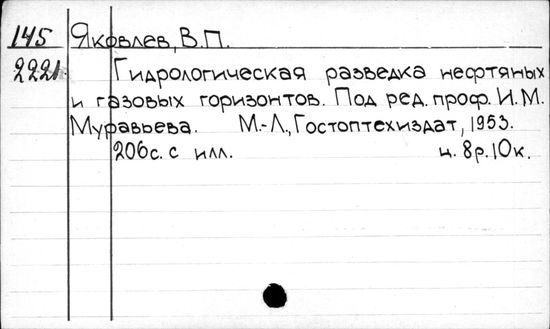 145 Яковлев, В.П.
2221 Гидрологическая разведка нефтяных
и газовых горизонтов. Под ред. проф. И.М.
Муравьева. М.-Л., Гостоптехиздат, 1953.
206с. с илл. ц. 8р.10к.